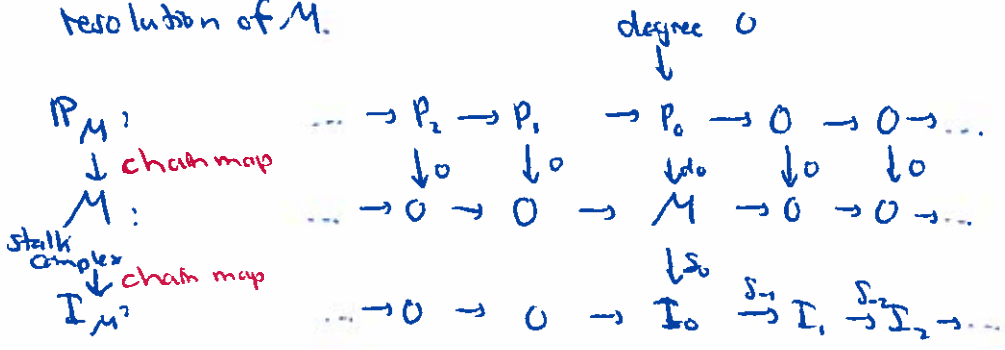 resolution of M.
degree 0
↓
P_M: .... → P_2 → P_1 → P_0 → 0 → 0 → ....
↓ chain map ↓0 ↓0 ↓d_0 ↓0 ↓0
M: .... → 0 → 0 → M → 0 → 0 → ....
stalk
complex
↓ chain map ↓δ_0
I_M: .... → 0 → 0 → I_0 —δ_-1→ I_1 —δ_-2→ I_2 → ....